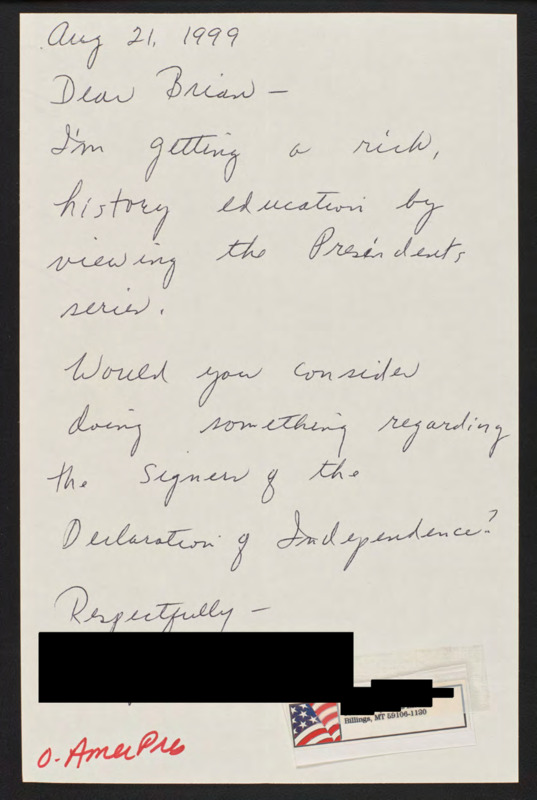 Aug 21, 1999
Dear Brian –
I'm getting a rich,
history education by
viewing the Presidents
series.
Would you consider
doing something regarding
the Signers of the
Declaration of Independence?
Respectfully –
Billings, MT 59106-1120
O. AmerPres